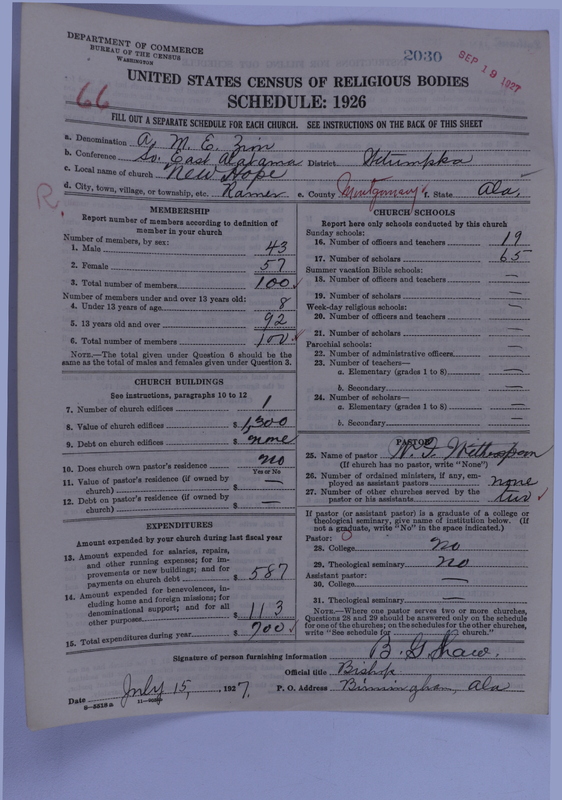 DEPARTMENT OF COMMERCE
BUREAU OF THE CENSUS
WASHINGTON
2030
SEP 19 1927
UNITED STATES CENSUS OF RELIGIOUS BODIES
SCHEDULE: 1926
66
FILL OUT A SEPARATE SCHEDULE FOR EACH CHURCH. SEE INSTRUCTIONS ON THE BACK OF THIS SHEET
a. Denomination A. M. E. Zion
b. Conference So. East Alabama District Wetumpka
c. Local name of church New Hope
d. City, town, village, or township, etc. Ramer e. County Montgomery f. State Ala.
R.
MEMBERSHIP
Report number of members according to definition of
member in your church
Number of members, by sex:
1. Male 43
2. Female 57
3. Total number of members 100
Number of members under and over 13 years old:
4. Under 13 years of age 8
5. 13 years old and over 92
6. Total number of members 100
NOTE.—The total given under Question 6 should be the
same as the total of males and females given under Question 3.
CHURCH BUILDINGS
See instructions, paragraphs 10 to 12
7. Number of church edifices 1
8. Value of church edifices $ 1,300
9. Debt on church edifices $ none
10. Does church own pastor's residence no
Yes or No
11. Value of pastor's residence (if owned by
church) $ —
12. Debt on pastor's residence (if owned by
church) $ —
EXPENDITURES
Amount expended by your church during last fiscal year
13. Amount expended for salaries, repairs,
and other running expenses; for im-
provements or new buildings; and for
payments on church debt $ 587
14. Amount expended for benevolences, in-
cluding home and foreign missions; for
denominational support; and for all
other purposes $ 113
15. Total expenditures during year $ 700
CHURCH SCHOOLS
Report here only schools conducted by this church
Sunday schools:
16. Number of officers and teachers 19
17. Number of scholars 65
Summer vacation Bible schools:
18. Number of officers and teachers —
19. Number of scholars —
Week-day religious schools:
20. Number of officers and teachers —
21. Number of scholars —
Parochial schools:
22. Number of administrative officers —
23. Number of teachers—
a. Elementary (grades 1 to 8) —
b. Secondary —
24. Number of scholars—
a. Elementary (grades 1 to 8) —
b. Secondary —
PASTOR
25. Name of pastor Witherspoon
(If church has no pastor, write "None")
26. Number of ordained ministers, if any, em-
ployed as assistant pastors none
27. Number of other churches served by the
pastor or his assistants two
If pastor (or assistant pastor) is a graduate of a college or
theological seminary, give name of institution below. (If
not a graduate, write "No" in the space indicated.)
Pastor:
28. College no
29. Theological seminary no
Assistant pastor:
30. College —
31. Theological seminary —
NOTE.—Where one pastor serves two or more churches,
Questions 28 and 29 should be answered only on the schedule
for one of the churches; on the schedules for the other churches,
write "See schedule for church."
Signature of person furnishing information B. G. Shaw.
Official title Bishop
Date July 15, 1927. P. O. Address Birmingham, Ala